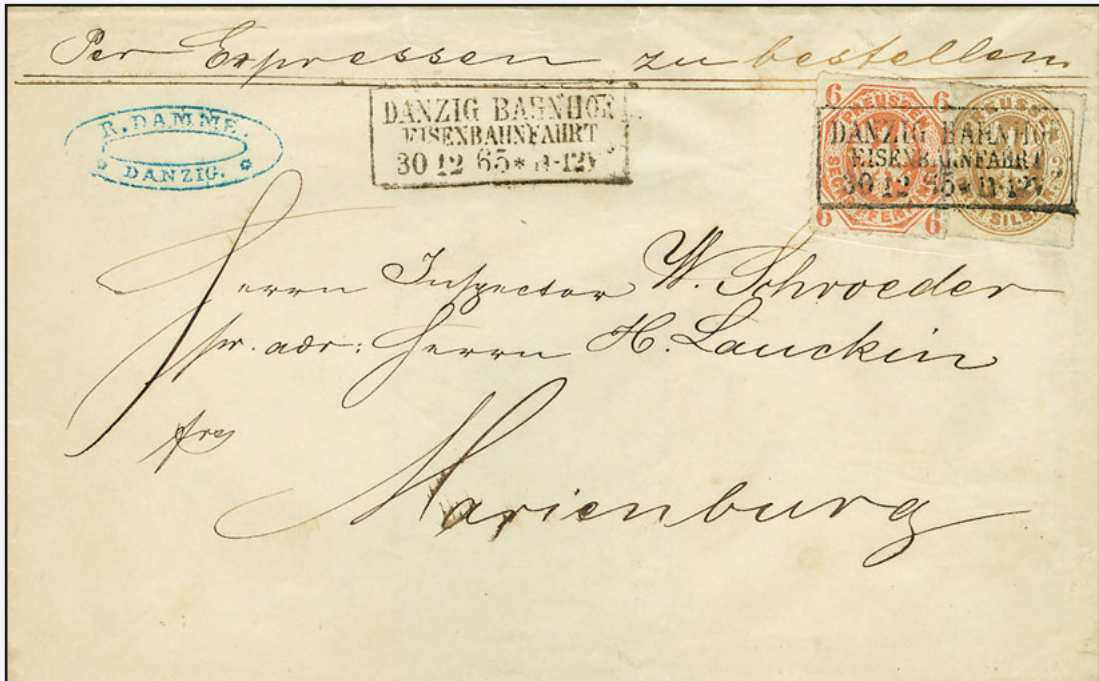 Per Expressen zu bestellen
R. DAMME.
DANZIG.
DANZIG BAHNHOF
EISENBAHNFAHRT
30 12 65 * 11-12V
6 6
PREUSSEN
6 6
3
DANZIG BAHNHOF
EISENBAHNFAHRT
30 12 65 * 11-12V
Herrn Inspector W. Schroeder
pr. adr: Herrn H. Lauckin
Marienburg